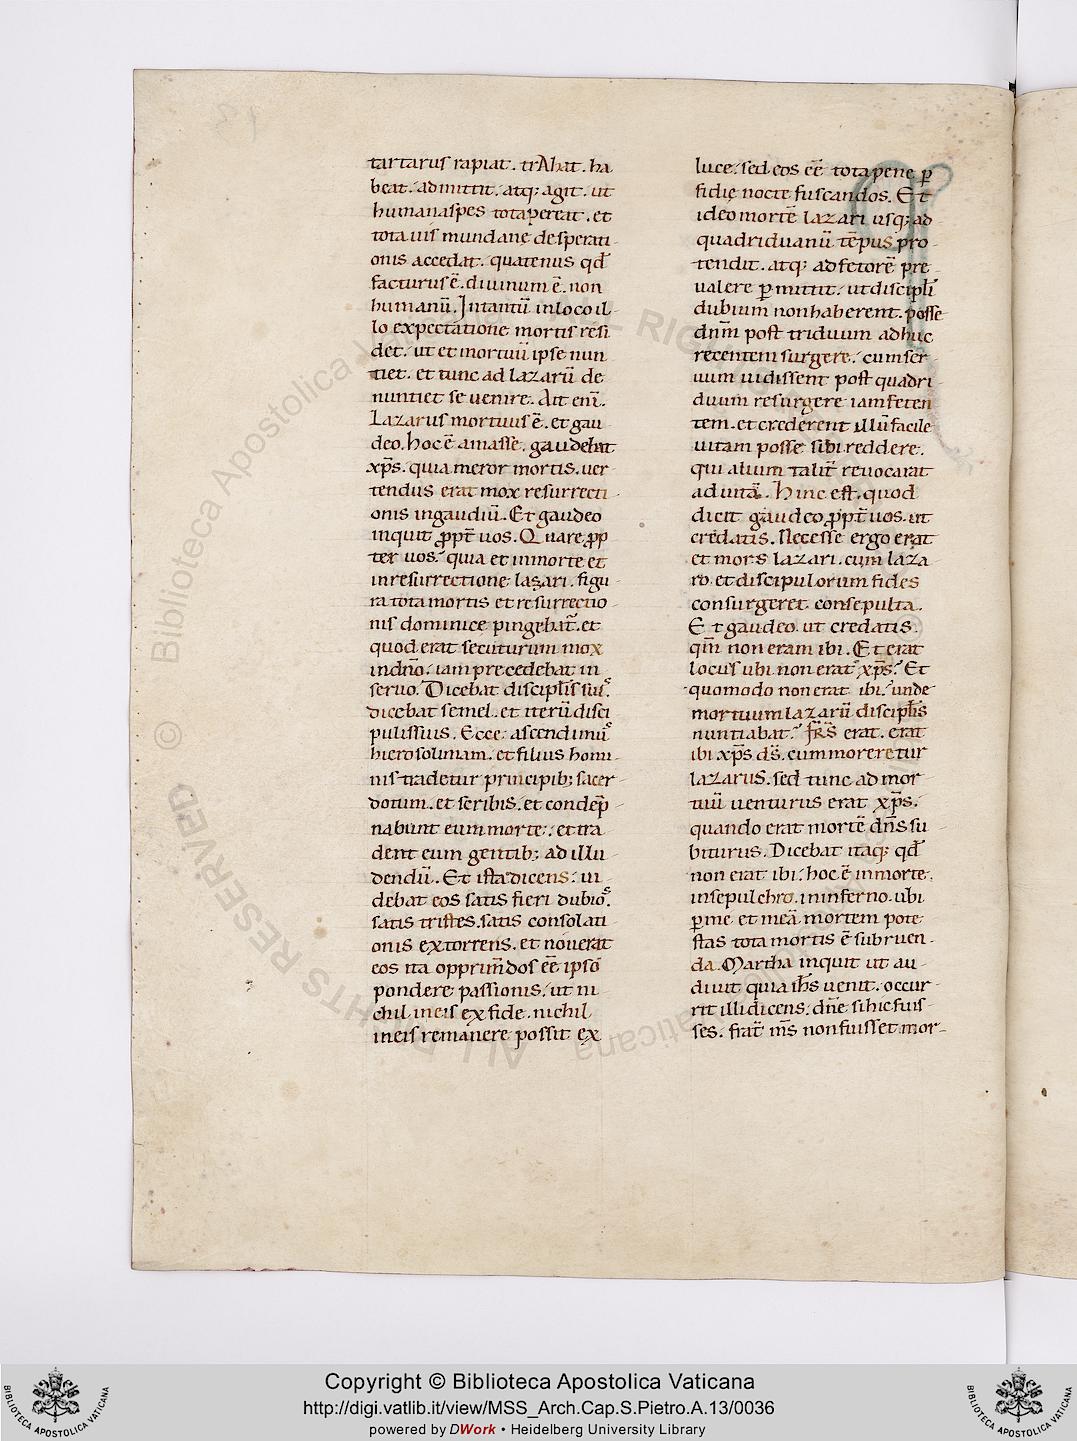 tartarus rapiat. trAhat. ha
beat. admittit. atq; agit. ut
humanaspes totapereat. et
tota uis mundanę desperati
onis accedat. quatenus qđ
facturus ē. diuinum ē. non
humanū. Intantū inloco il
lo expectatione mortis resi
det. ut et mortuū ipse nun
tiet. et tunc ad lazarū de
nuntiet se uenire. Ait eni.
Lazarus mortuus ē. et gau
deo. hoc ē amasse. gaudebat
xp̄s. quia meror mortis. uer
tendus erat mox resurrecti
onis ingaudiū. Et gaudeo
inquit ꝓpt̄ uos. Quare ꝓp
ter uos. quia et inmorte et
inresurrectione lazari. figu
ra tota mortis et resurrectio
nis dominicę pingebat̄. et
quod erat secuturum mox
indn̄o. iam precedebat in
seruo. Dicebat discipl̄is sui꒱
dicebat semel. et iterū disci
pulis suis. Ecce ascendimu꒱
hierosolimam. et filius homi
nis tradetur principib; sacer
dotum. et scribis. et condēp
nabunt eum morte. et tra
dent eum gentib; ad illu
dendū. Et ista dicens. ui
debat eos satis fieri dubio꒱
satis tristes. satis consolati
onis extorrens. et nouerat
eos ita opprim̄dos eē ipsō
pondere passionis. ut ni
chil ineis ex fide. nichil
ineis remanere possit ex
luce. sed eos eē tota pene ꝑ
fidię nocte fuscandos. Et
ideo mortē lazari usq; ad
quadriduanū tēpus pro
tendit. atq; ad fetorē pre
ualere ꝑmittit. ut discipl̄i
dubium non haberent. posse
dn̄m post triduum adhuc
recentem surgere. cum ser
uum uidissent post quadri
duum resurgere iam feten
tem. et crederent illū facile
uitam posse sibi reddere.
qui alium talit̄ reuocarat
ad uitā. Hinc est. quod
dicit gaudeo ꝓpt̄ uos. ut
credatis. Necesse ergo erat
et mors lazari. cum laza
ro et discipulorum fides
consurgeret consepulta.
Et gaudeo ut credatis
qm̄ non eram ibi. Et erat
locus ubi non erat xp̄s? Et
quomodo non erat ibi? unde
mortuum lazarū discipl̄is
nuntiabat? fr̄s erat. erat
ibi xp̄s ds̄. cum moreretur
lazarus. sed tunc ad mor
tuū uenturus erat xp̄s.
quando erat mortē dn̄s su
biturus. Dicebat itaq; qđ
non erat ibi. hoc ē inmorte.
insepulchro. in inferno. ubi
ꝑ me et meā mortem pote
stas tota mortis ē subruen
da. Martha inquit ut au
diuit quia ih̄s uenit. occur
rit illi dicens. dn̄e si hic fuis
ses. frat̄ ms̄ non fuisset mor-
© Biblioteca Apostolica Vaticana
ALL RIGHTS RESERVED
Copyright © Biblioteca Apostolica Vaticana
http://digi.vatlib.it/view/MSS_Arch.Cap.S.Pietro.A.13/0036
powered by DWork • Heidelberg University Library
BIBLIOTECA APOSTOLICA VATICANA
BIBLIOTECA APOSTOLICA VATICANA